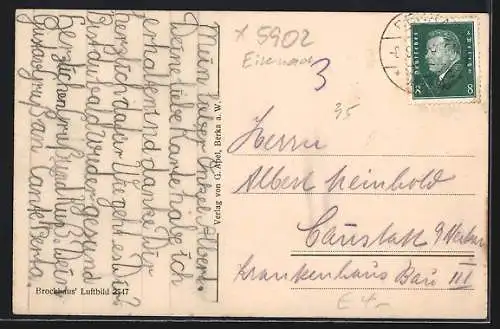 Mein lieber Onkel Albert.
Deine liebe Karte habe ich
erhalten und danke Dir
herzlich dafür. Wie geht es Dir?
Bist du bald wieder gesund
Herzlichen Gruß und Kuß. Dein
Gustav. Gruß an Tante Berta.
Brockhaus' Luftbild
Verlag von G. Apel, Berka a. W.
x 5902
Eisenach
3
35
Deutsches Reich
8 8
Herrn
Albert Meinhold
Canstatt a/Neckar
Krankenhaus Bau III
E 4-